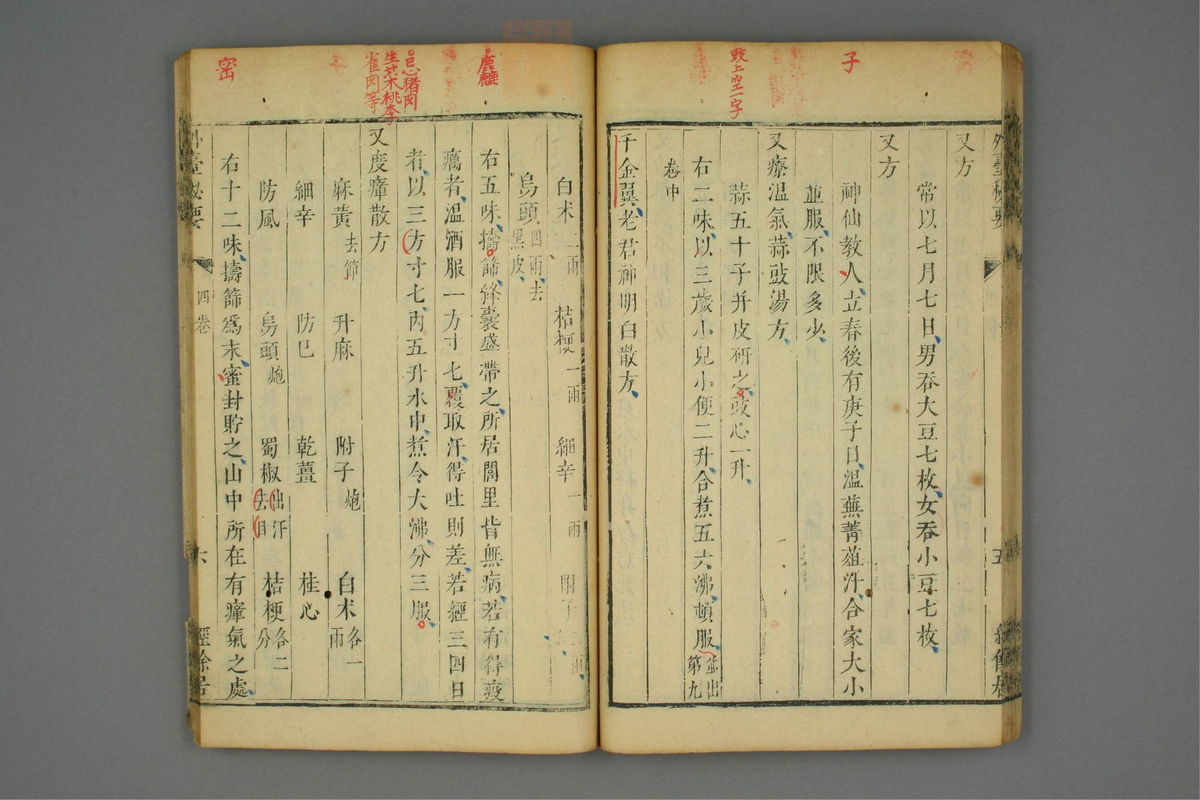 子
豉上空一字
外臺秘要
五
經餘居
又方
常以七月七日男吞大豆七枚女吞小豆七枚
又方
神仙教人立春後有庚子日溫蕪菁葅汁合家大小
並服不限多少
又療溫氣蒜豉湯方
蒜五十子并皮研之豉心一升
右二味以三歲小兒小便二升合煮五六沸頓服並出第九
卷中
千金翼老君神明白散方
麤
○忌猪肉
生菜桃李
雀肉等
密
白朮二兩 桔梗一兩 細辛一兩 附子
烏頭四兩去黑皮
右五味擣篩絳囊盛帶之所居閭里皆無病若有得疫
癘者溫酒服一方寸匕覆取汗得吐則差若經三四日
者以三方寸匕內五升水中煮令大沸分三服
又度瘴散方
麻黃去節 升麻 附子炮 白朮各一兩
細辛 防巳 乾薑 桂心
防風 烏頭炮 蜀椒出汗去目 桔梗各二分
右十二味擣篩爲末蜜封貯之山中所在有瘴氣之處
外臺秘要
四卷
六
經餘居